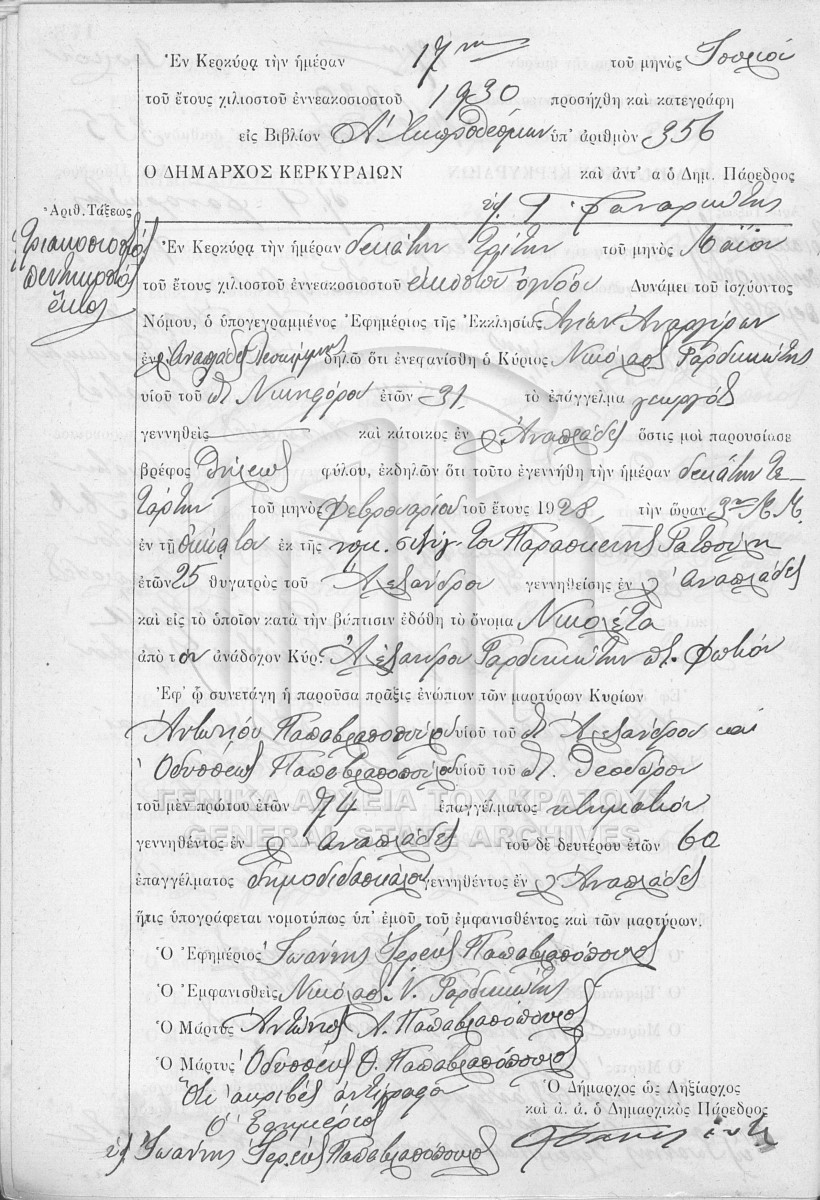 Ἐν Κερκύρᾳ τὴν ἡμέραν 17ην τοῦ μηνὸς Ἰουλίου
τοῦ ἔτους χιλιοστοῦ ἐννεακοσιοστοῦ 1930 προσήχθη καὶ κατεγράφη
εἰς Βιβλίον Α. Ἐκπροθέσμων ὑπ' ἀριθμὸν 356
Ο ΔΗΜΑΡΧΟΣ ΚΕΡΚΥΡΑΙΩΝ καὶ ἀντ' α ὁ Δημ. Πάρεδρος
Γ. Φαναριώτης
Ἀριθ. Τάξεως
τριακοσιοστὸς
πεντηκοστὸς
ἕκτος
Ἐν Κερκύρᾳ τὴν ἡμέραν δεκάτην τρίτην τοῦ μηνὸς Μαΐου
τοῦ ἔτους χιλιοστοῦ ἐννεακοσιοστοῦ εἰκοστοῦ ὀγδόου Δυνάμει τοῦ ἰσχύοντος
Νόμου, ὁ ὑπογεγραμμένος Ἐφημέριος τῆς Ἐκκλησίας Ἁγίων Ἀναργύρων
ἐν Ἀναπλάδες Λευκίμμης δηλῶ ὅτι ἐνεφανίσθη ὁ Κύριος Νικόλαος Γαρδικιώτης
υἱοῦ τοῦ π. Νικηφόρου ἐτῶν 31 τὸ ἐπάγγελμα γεωργὸς
γεννηθεὶς καὶ κάτοικος ἐν Ἀναπλάδες ὅστις μοὶ παρουσίασε
βρέφος θήλεως φύλου, ἐκδηλῶν ὅτι τοῦτο ἐγεννήθη τὴν ἡμέραν δεκάτην τε-
τάρτην τοῦ μηνὸς Φεβρουαρίου τοῦ ἔτους 1928 τὴν ὥραν 3ην Μ.Μ.
ἐν τῇ οἰκίᾳ του ἐκ τῆς νομ. συζύγ. του Παρασκευῆς
ἐτῶν 25 θυγατρὸς τοῦ Ἀλεξάνδρου γεννηθείσης ἐν Ἀναπλάδες
καὶ εἰς τὸ ὁποῖον κατὰ τὴν βάπτισιν ἐδόθη τὸ ὄνομα Νικολέτα
ἀπὸ τὸν ἀνάδοχον Κύρ. Ἀλέξανδρον Γαρδικιώτην π. Φωτίου
Ἐφ' ᾧ συνετάγη ἡ παροῦσα πρᾶξις ἐνώπιον τῶν μαρτύρων Κυρίων
Ἀντωνίου Παπαβλασοπούλου υἱοῦ τοῦ π. Ἀλεξάνδρου καὶ
Ὀδυσσέως Παπαβλασοπούλου υἱοῦ τοῦ π. Θεοδώρου
τοῦ μὲν πρώτου ἐτῶν 74 ἐπαγγέλματος κτηματίου
γεννηθέντος ἐν Ἀναπλάδες τοῦ δὲ δευτέρου ἐτῶν 60
ἐπαγγέλματος δημοδιδασκάλου γεννηθέντος ἐν Ἀναπλάδες
ἥτις ὑπογράφεται νομοτύπως ὑπ' ἐμοῦ, τοῦ ἐμφανισθέντος καὶ τῶν μαρτύρων.
Ὁ Ἐφημέριος Ἰωάννης Ἱερεὺς Παπαβλασόπουλος
Ὁ Ἐμφανισθεὶς Νικόλαος Ν. Γαρδικιώτης
Ὁ Μάρτυς Ἀντώνιος Α. Παπαβλασόπουλος
Ὁ Μάρτυς Ὀδυσσεὺς Θ. Παπαβλασόπουλος
Ὅτι ἀκριβὲς ἀντίγραφον
Ὁ Ἐφημέριος
Ἰωάννης Ἱερεὺς Παπαβλασόπουλος
Ὁ Δήμαρχος ὡς Ληξίαρχος
καὶ ἀ. ἀ. ὁ Δημαρχικὸς Πάρεδρος
ΓΕΝΙΚΑ ΑΡΧΕΙΑ ΤΟΥ ΚΡΑΤΟΥΣ
GENERAL STATE ARCHIVES